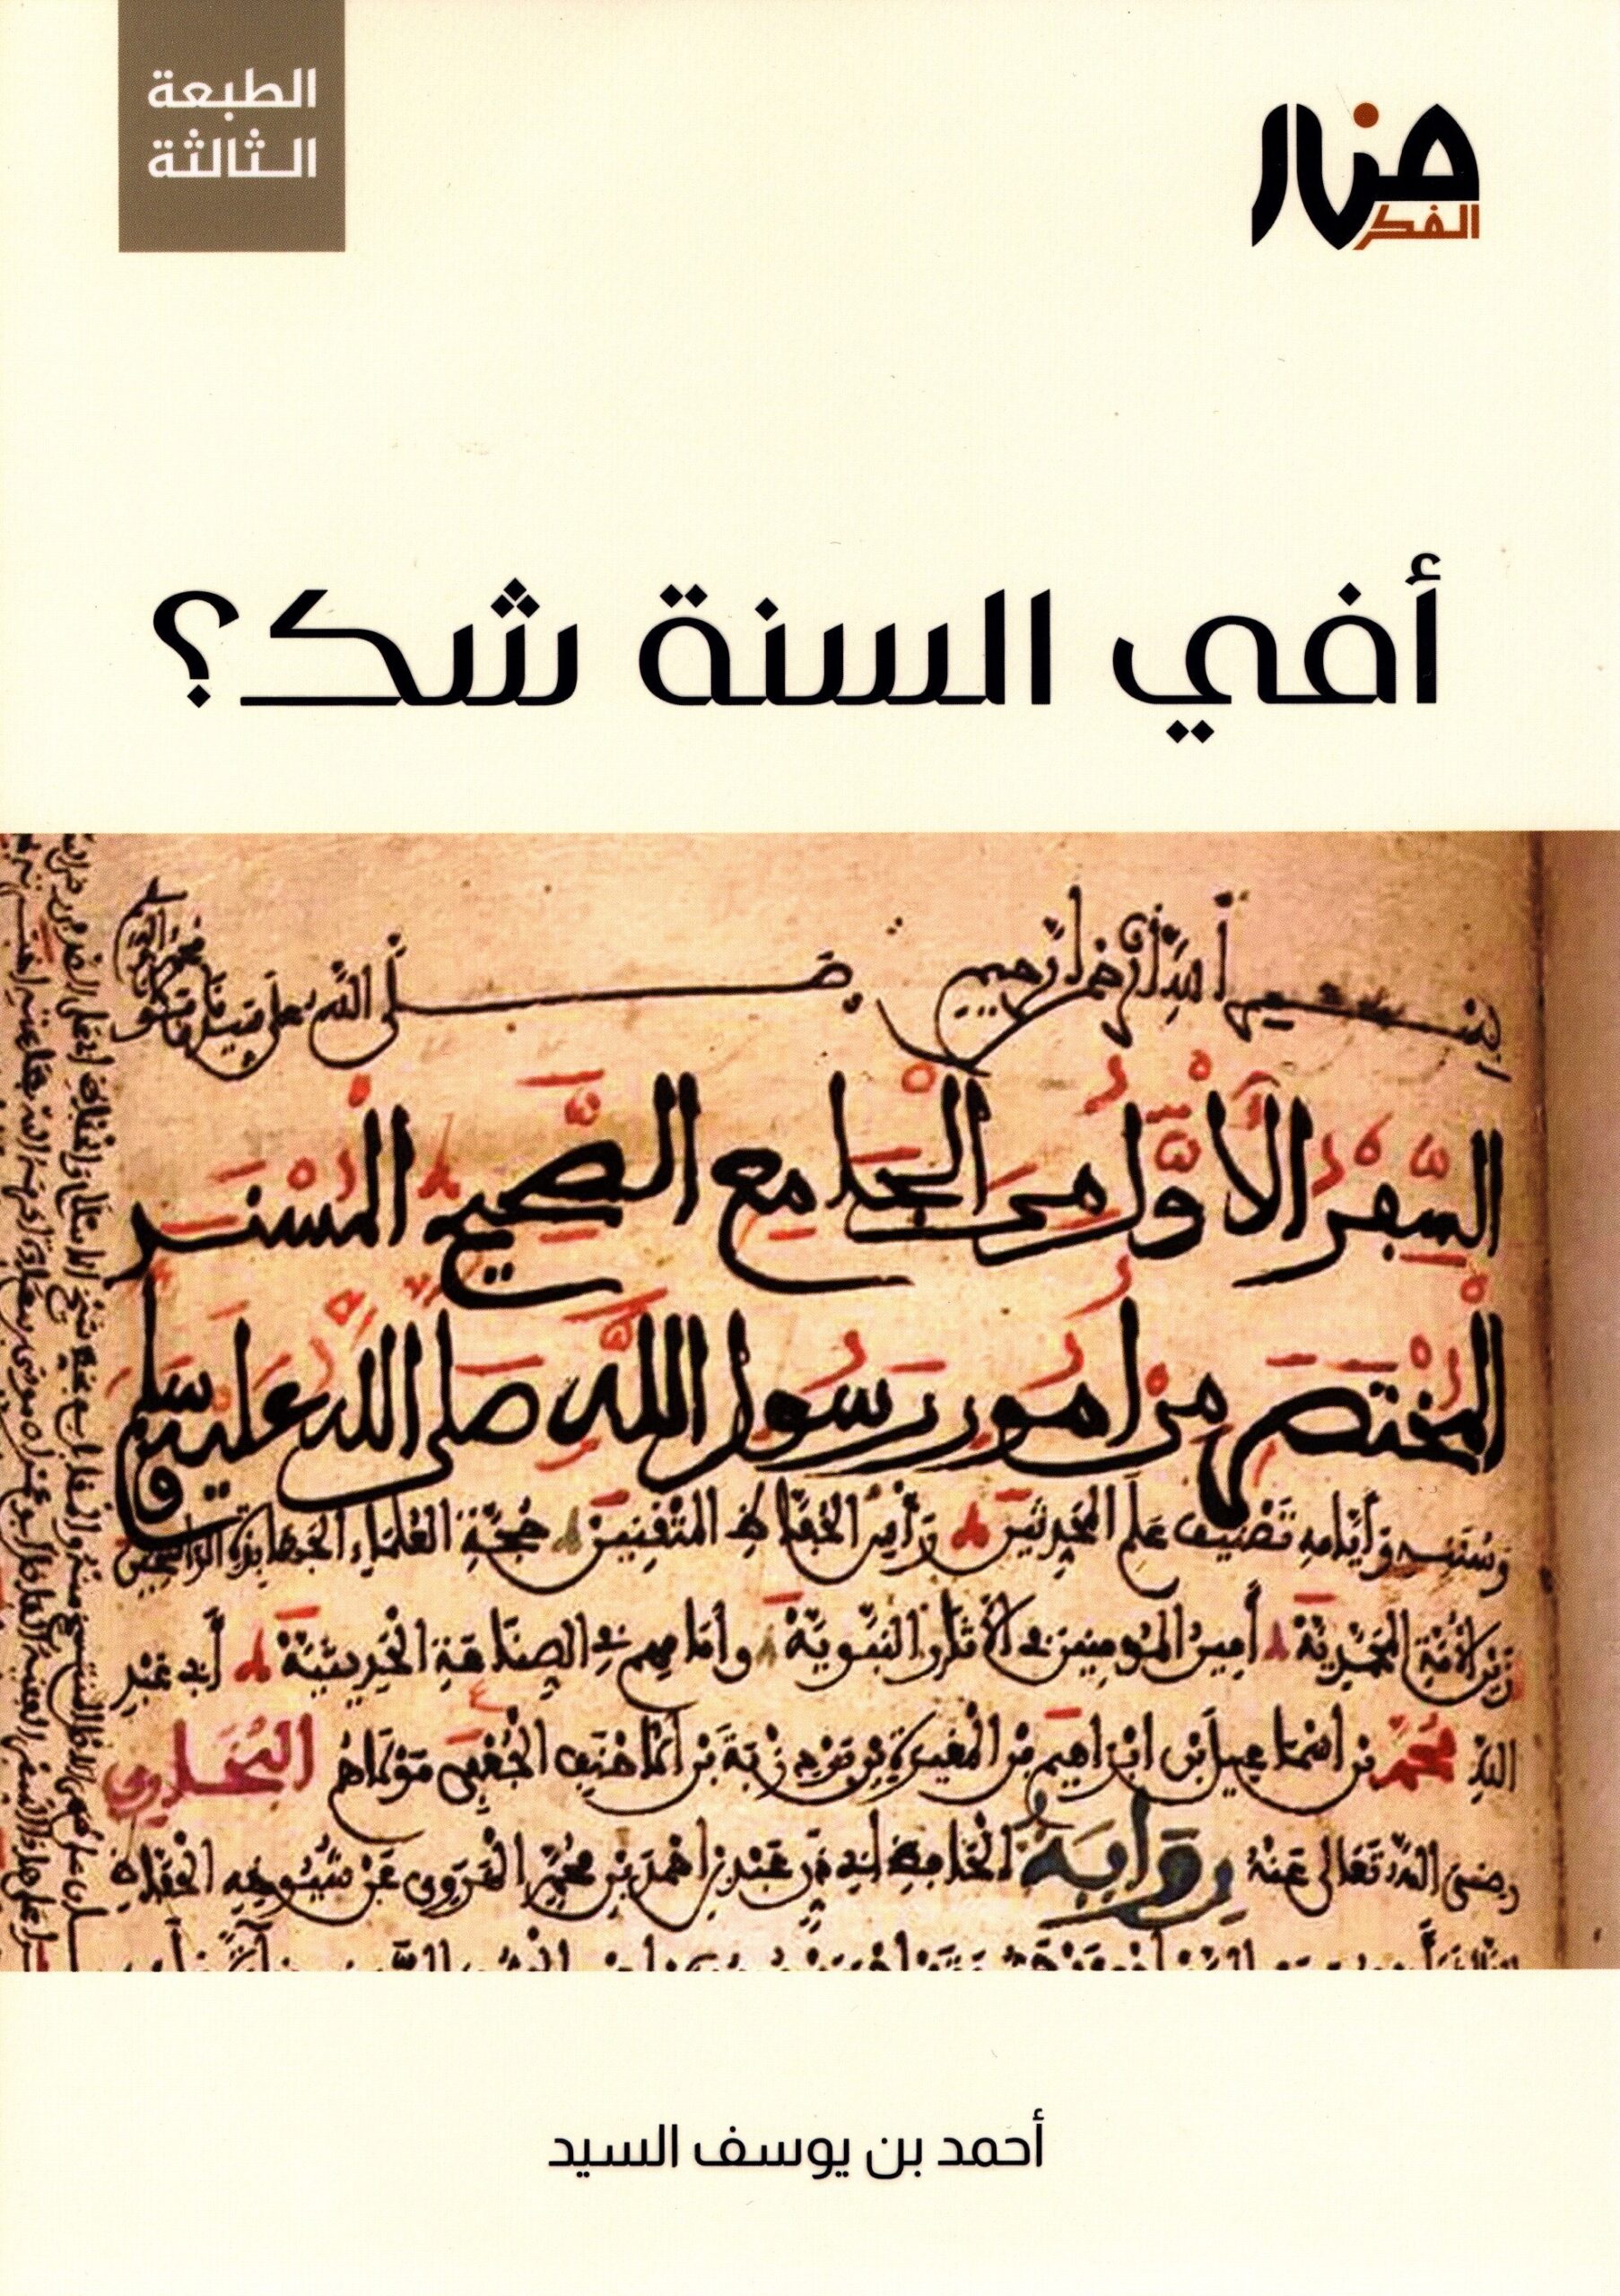 الطبعة
الثالثة
منار
الفكر
أفي السنة شك؟
بسم الله الرحمن الرحيم صلى الله على سيدنا
السفر الأول من الجامع الصحيح المسند
المختصر من أمور رسول الله صلى الله عليه وسلم
وسننه وأيامه تصنيف علم المحدثين ورأس الحفاظ المتقنين حجة العلماء الجهابذة الراسخين
زين الأمة المحمدية أمير المومنين في الآثار النبوية وإمامهم في الصناعة الحديثية أبي عبد
الله محمد بن اسماعيل بن ابراهيم بن المغيرة بن بن الجعفي مولاهم البخاري
رضي الله تعالى عنه رواية الحافظ أبي ذر عبد بن احمد بن محمد الهروي عن شيوخه
أحمد بن يوسف السيد